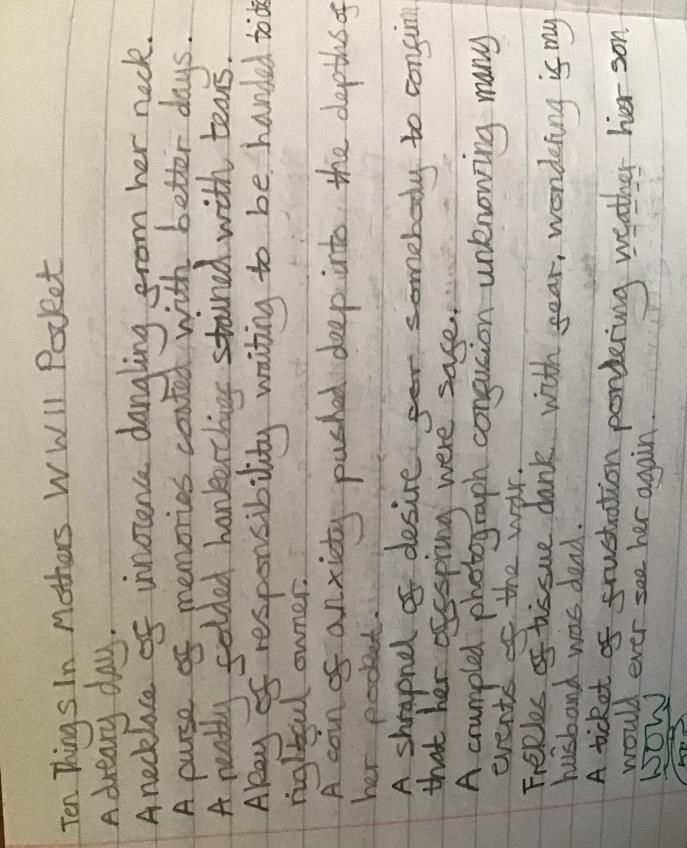 Ten Things In Mothers WWII Pocket
A dreary day.
A necklace of innorence dangling from her neck.
A purse of memories coated with better days.
A neatly folded hankerchief stained with tears.
A key of responsibility waiting to be handed to its
rightful owner.
A coin of anxiety pushed deep into the depths of
her pocket.
A shrapnel of desire for somebody to confirm
that her offspring were safe.
A crumpled photograph confusion unknowing many
events of the war.
Frekles of tissue dank with fear, wondering if my
husband was dead.
A ticket of frustration pondering weather her son
would ever see her again.
WOW